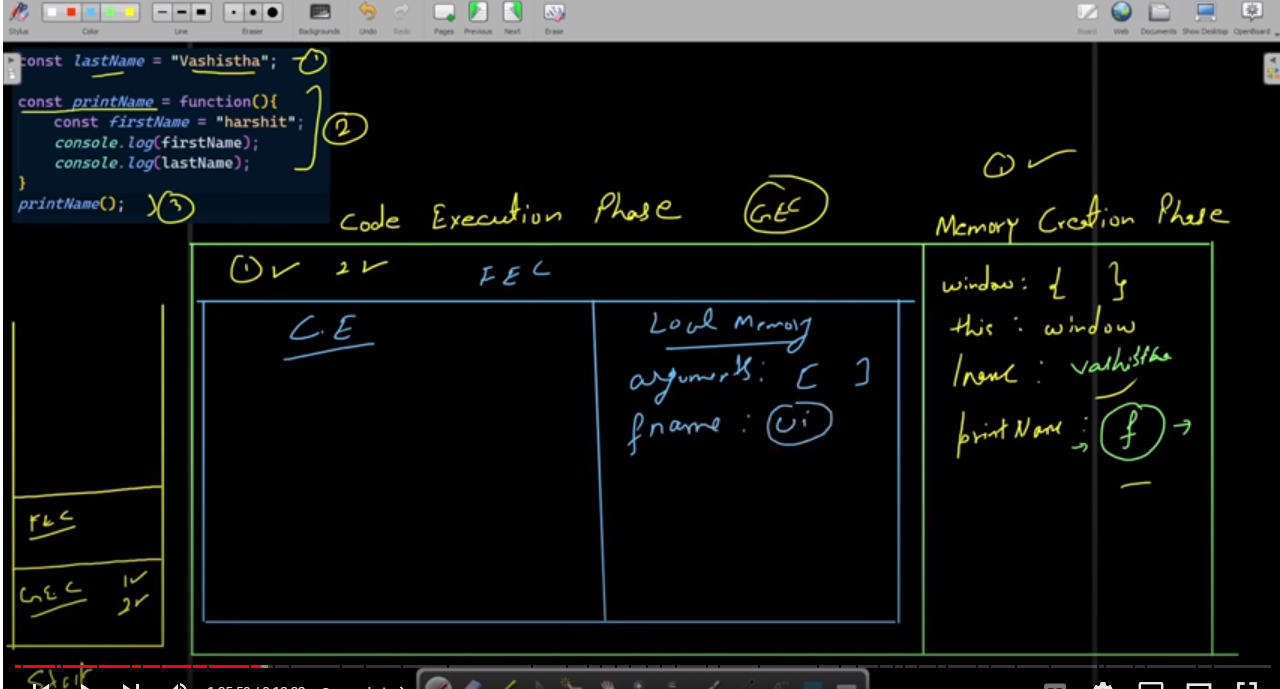 Stylus Color Line Eraser Backgrounds Undo Redo Pages Previous Next Erase Board Web Documents Show Desktop OpenBoard
const lastName = "Vashistha"; 1
const printName = function(){
const firstName = "harshit";
console.log(firstName);
console.log(lastName);
}
2
printName(); 3
1
Code Execution Phase GEC Memory Creation Phase
1 2 FEC
window: { }
C.E Local Memory
this: window
arguments: [ ]
lname: vashistha
fname: ui
printName: f
FEC
GEC 1
2
Stack